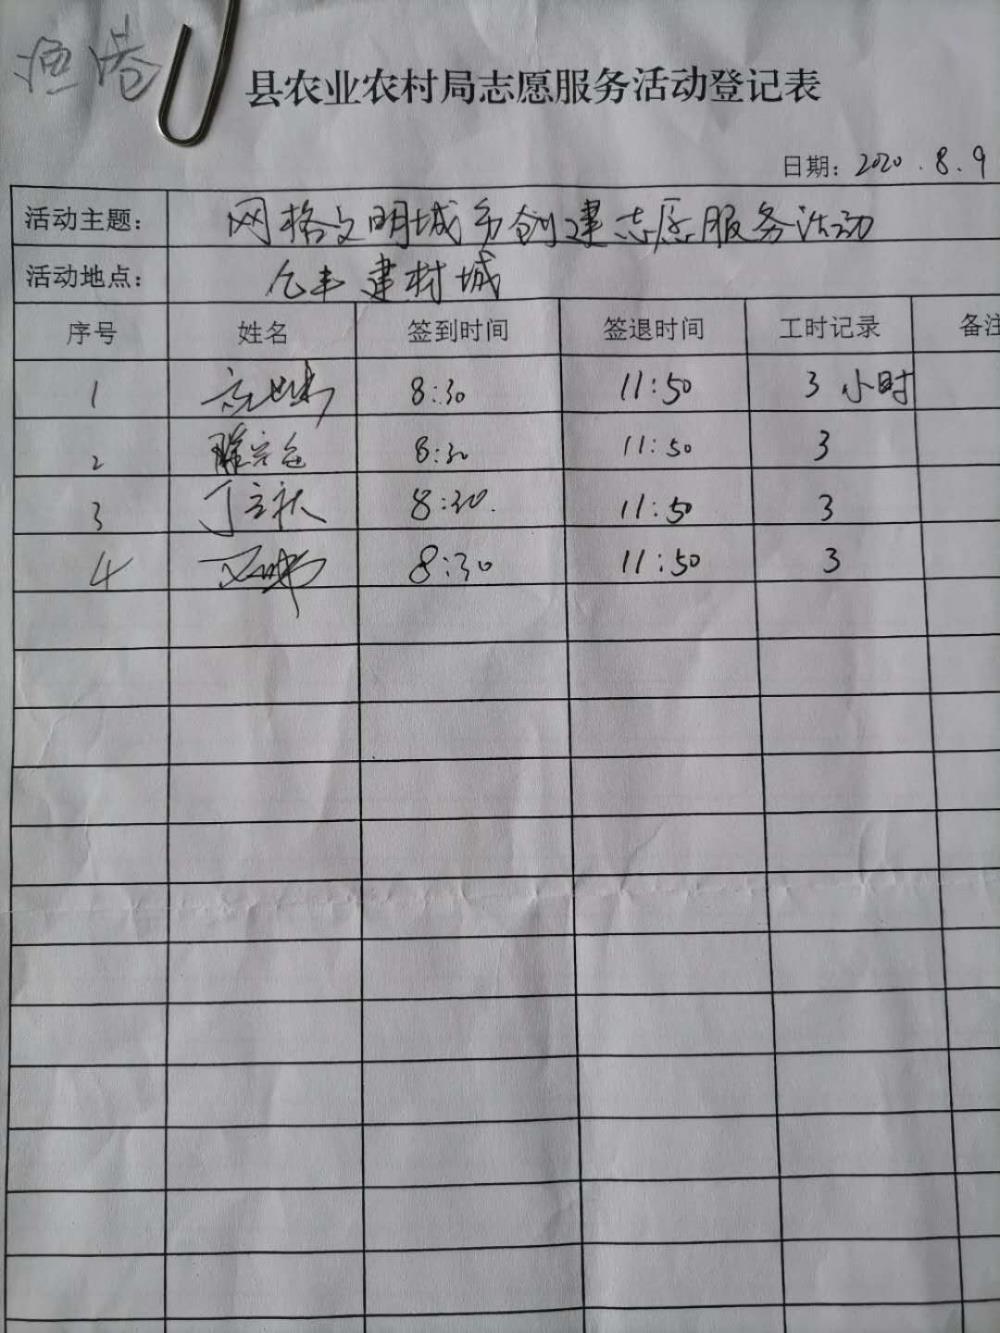 渔港
县农业农村局志愿服务活动登记表
日期：2020.8.9
活动主题： 网格文明城市创建志愿服务活动
活动地点： 亿丰建材城
序号 姓名 签到时间 签退时间 工时记录 备注
1 8:30 11:50 3小时
2 8:30 11:50 3
3 丁 8:30. 11:50 3
4 8:30 11:50 3